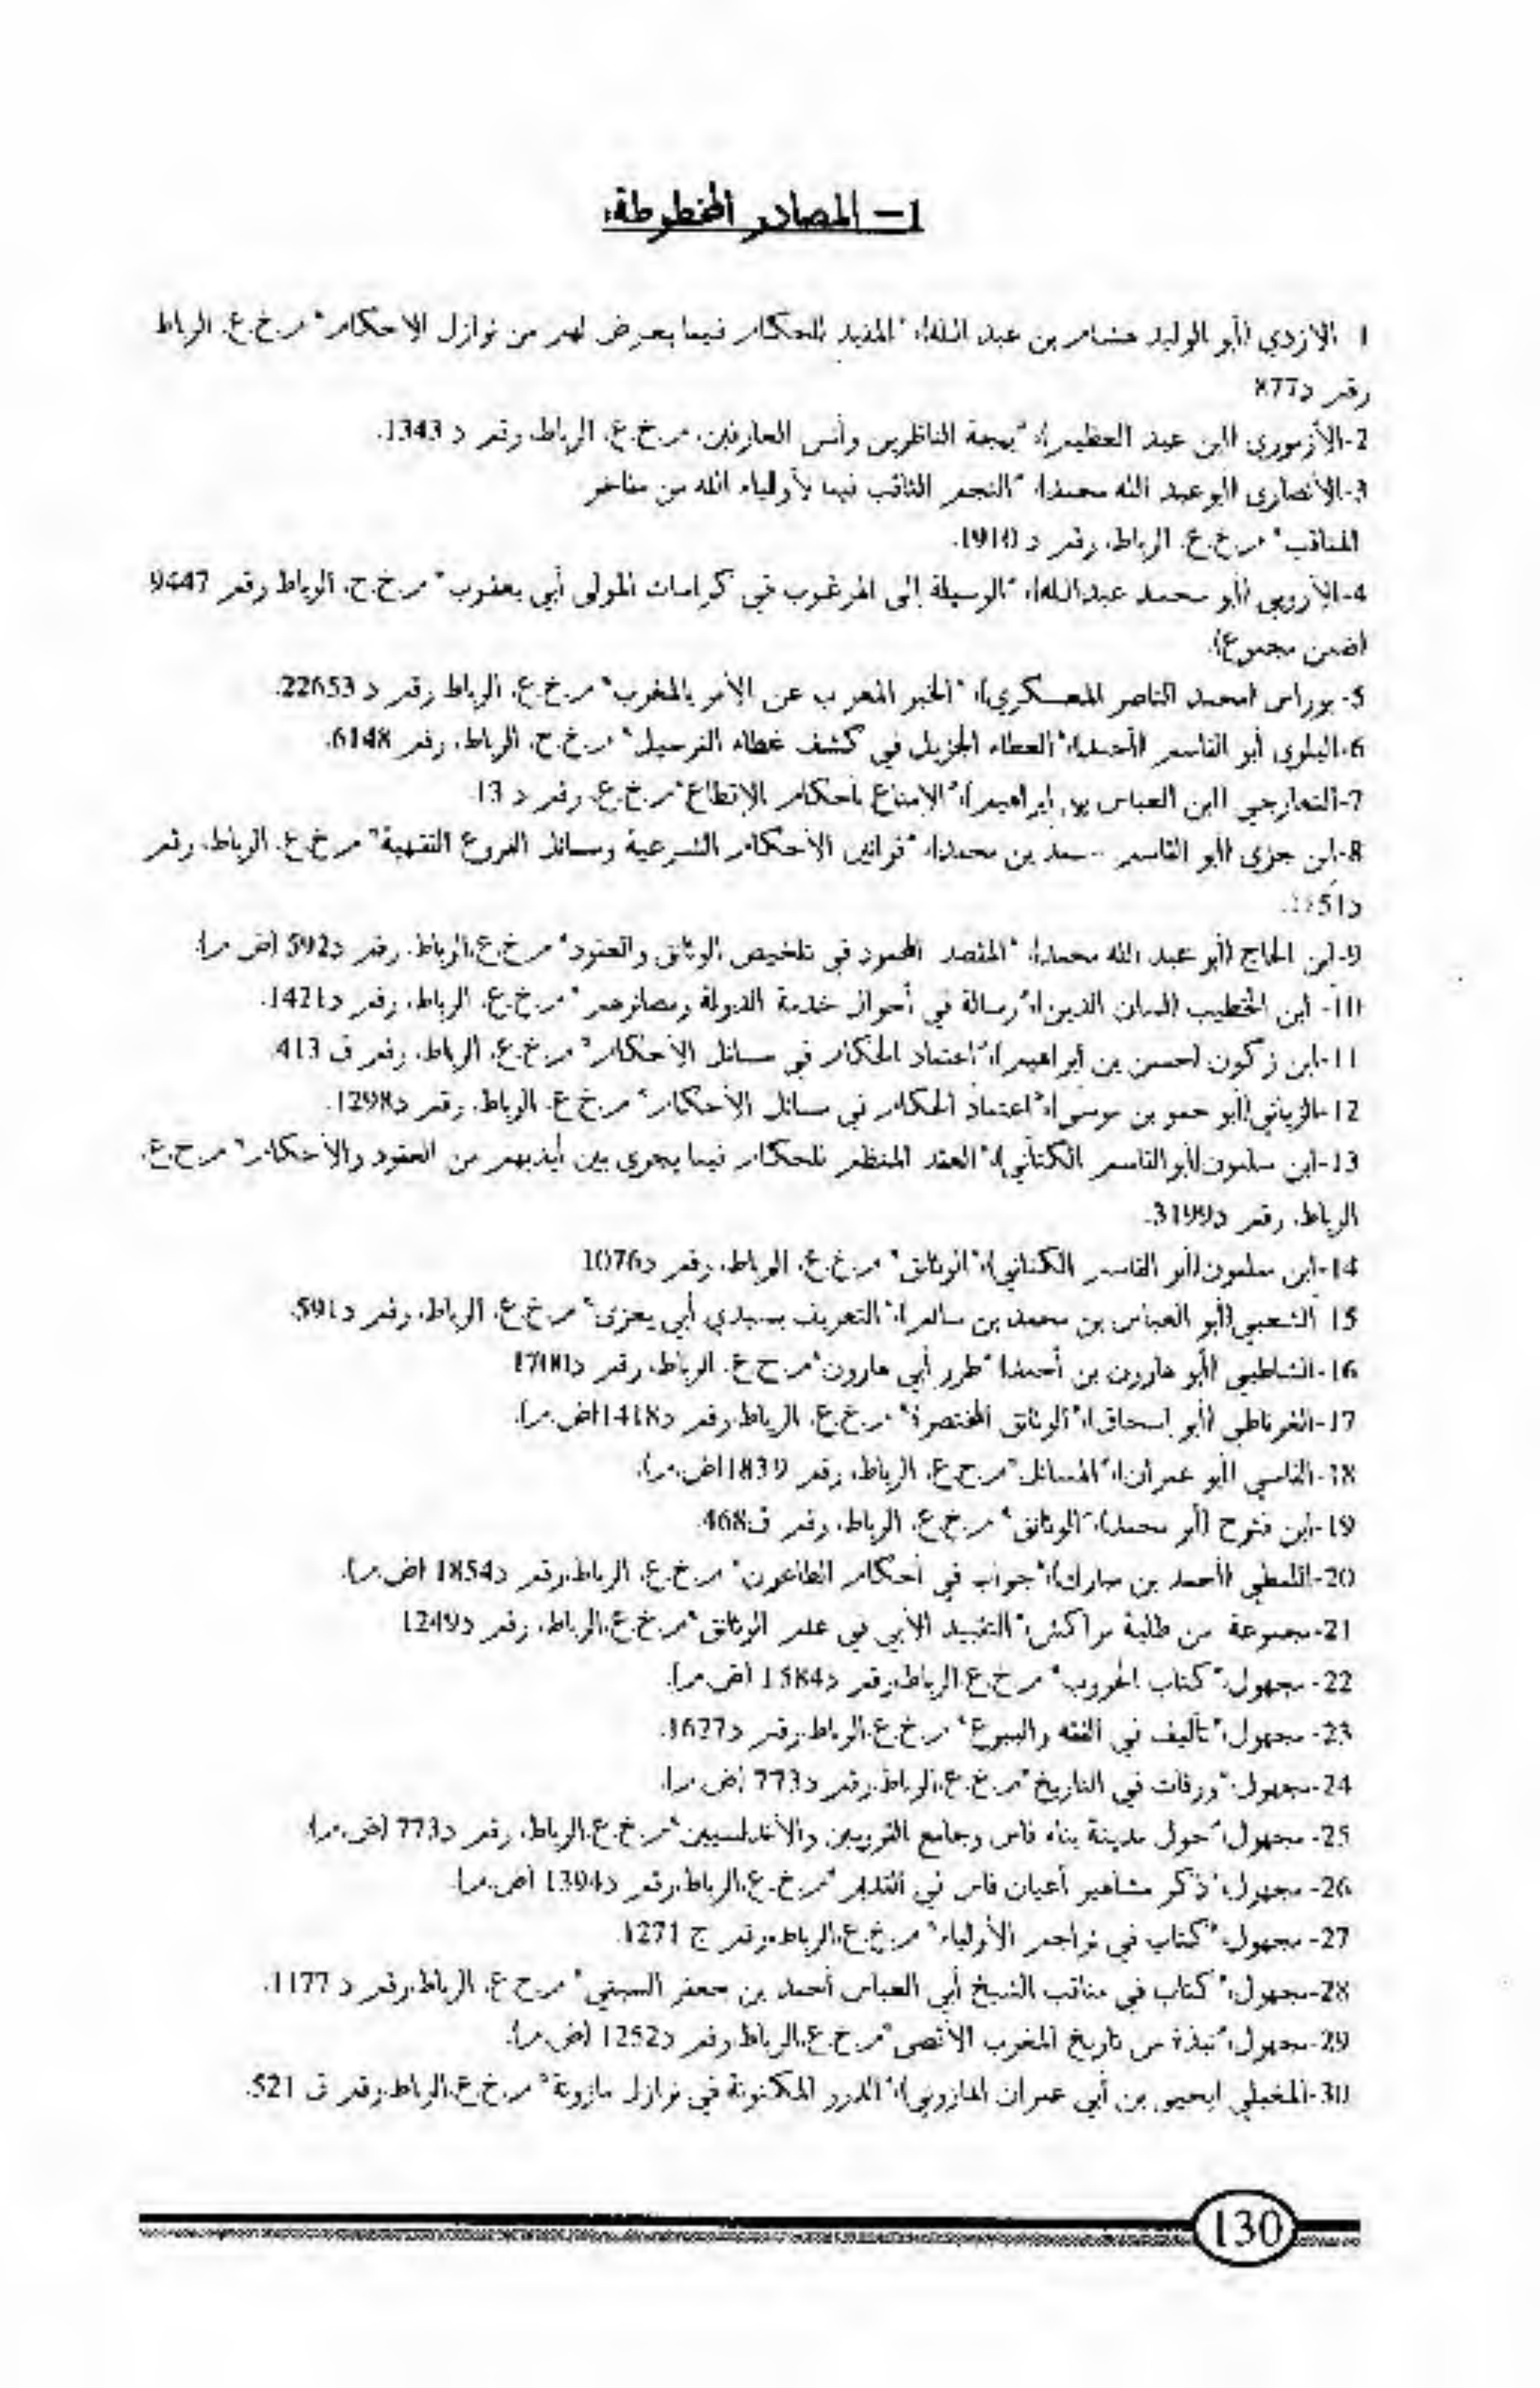 1- المصادر المخطوطة:
1- الازدي (أبو الوليد هشام بن عبد الله)، "المفيد للحكام فيما يعرض لهم من نوازل الاحكام" م.خ.ع. الرباط
رقم د877
2-الأزموري (ابن عبد العظيم)، "بهجة الناظرين وأنس العارفين، م.خ.ع. الرباط، رقم د 1343.
3-الأنصاري (أبو عبد الله محمد)، "النجم الثاقب فيما لأولياء الله من مفاخر
المناقب" م.خ.ع. الرباط، رقم د 1910.
4-الأروبي (أبو محمد عبدالله)، "الوسيلة إلى المرغوب في كرامات المولى أبي يعقوب" م.خ.ح، الرباط رقم 9447
(ضمن مجموع).
5- بوراس (محمد الناصر المعسكري)، "الخبر المعرب عن الأمر بالمغرب" م.خ.ع. الرباط رقم د 22653.
6-البلوي أبو القاسم (أحمد)،"العطاء الجزيل في كشف غطاء الترسيل" م.خ.ح. الرباط، رقم 6148.
7-التعارجي (ابن العباس بن إبراهيم)،"الإمتاع بأحكام الإقطاع"م.خ.ع. رقم د 13.
8-ابن جزي (أبو القاسم محمد بن محمد)، "قوانين الأحكام الشرعية ومسائل الفروع الفقهية" م.خ.ع. الرباط، رقم
9-ابن الحاج (أبو عبد الله محمد)، "المقصد المحمود في تلخيص الوثائق والعقود" م.خ.ع.الرباط، رقم د592 (ض م).
10- ابن الخطيب (لسان الدين)،"رسالة في أحوال خدمة الدولة ومصائرهم" م.خ.ع. الرباط، رقم د1421.
11-ابن زكون (حسن بن ابراهيم)،"اعتماد الحكام في مسائل الأحكام" م.خ.ع. الرباط، رقم ق 413.
12-الزياني(أبو حمو بن موسى)،"اعتماد الحكام في مسائل الأحكام" م.خ.ع. الرباط، رقم د1298.
13-ابن سلمون(أبوالقاسم الكناني)،"العقد المنظم للحكام فيما يجري بين أيديهم من العقود والأحكام" م.خ.ع.
الرباط، رقم د3199.
14-ابن سلمون(أبو القاسم الكناني)،"الوثائق" م.خ.ع. الرباط، رقم د1076
15 الشعبي(أبو العباس بن محمد بن سالم)،"التعريف بسيدي أبي يعزى" م.خ.ع. الرباط، رقم د591.
16-الشاطبي (أبو هارون بن أحمد) "طرر أبي هارون"م.خ.ع. الرباط، رقم د1700
17-الغرناطي (أبو إسحاق)،"الوثائق المختصرة" م.خ.ع. الرباط،رقم د1418(ض.م).
18-الفاسي (أبو عمران)،"المسائل"م.خ.ع. الرباط، رقم 1839(ض.م).
19-ابن فتوح (أبو محمد)،"الوثائق" م.خ.ع. الرباط، رقم ق468.
20-اللمطي (أحمد بن مبارك)،"جواب في أحكام الطاعون" م.خ.ع. الرباط،رقم د1854 (ض.م).
21-مجموعة من طلبة مراكش،"التقييد الأبي في علم الوثائق"م.خ.ع.الرباط، رقم د1249
22- مجهول،"كتاب الحروب" م.خ.ع.الرباط،رقم د1584 (ض.م).
23- مجهول،"تأليف في الفقه والبيوع" م.خ.ع.الرباط،رقم د1627.
24-مجهول،"ورقات في التاريخ"م.خ.ع.الرباط،رقم د773 (ض.م).
25- مجهول،"حول مدينة بناء فاس وجامع القرويين والأندلسيين"م.خ.ع.الرباط، رقم د773 (ض.م).
26- مجهول،"ذكر مشاهير أعيان فاس في القديم"م.خ.ع.الرباط،رقم د1394 (ض.م).
27- مجهول،"كتاب في تراجم الأولياء" م.خ.ع.الرباط،رقم ج 1271.
28-مجهول،"كتاب في مناقب الشيخ أبي العباس أحمد بن جعفر السبتي" م.خ.ع. الرباط،رقم د 1177.
29-مجهول،"نبذة من تاريخ المغرب الأقصى"م.خ.ع.الرباط،رقم د1252 (ض.م).
30-المغيلي (يحيى بن أبي عمران المازوني)،"الدرر المكنونة في نوازل مازونة" م.خ.ع.الرباط،رقم ق 521.
130